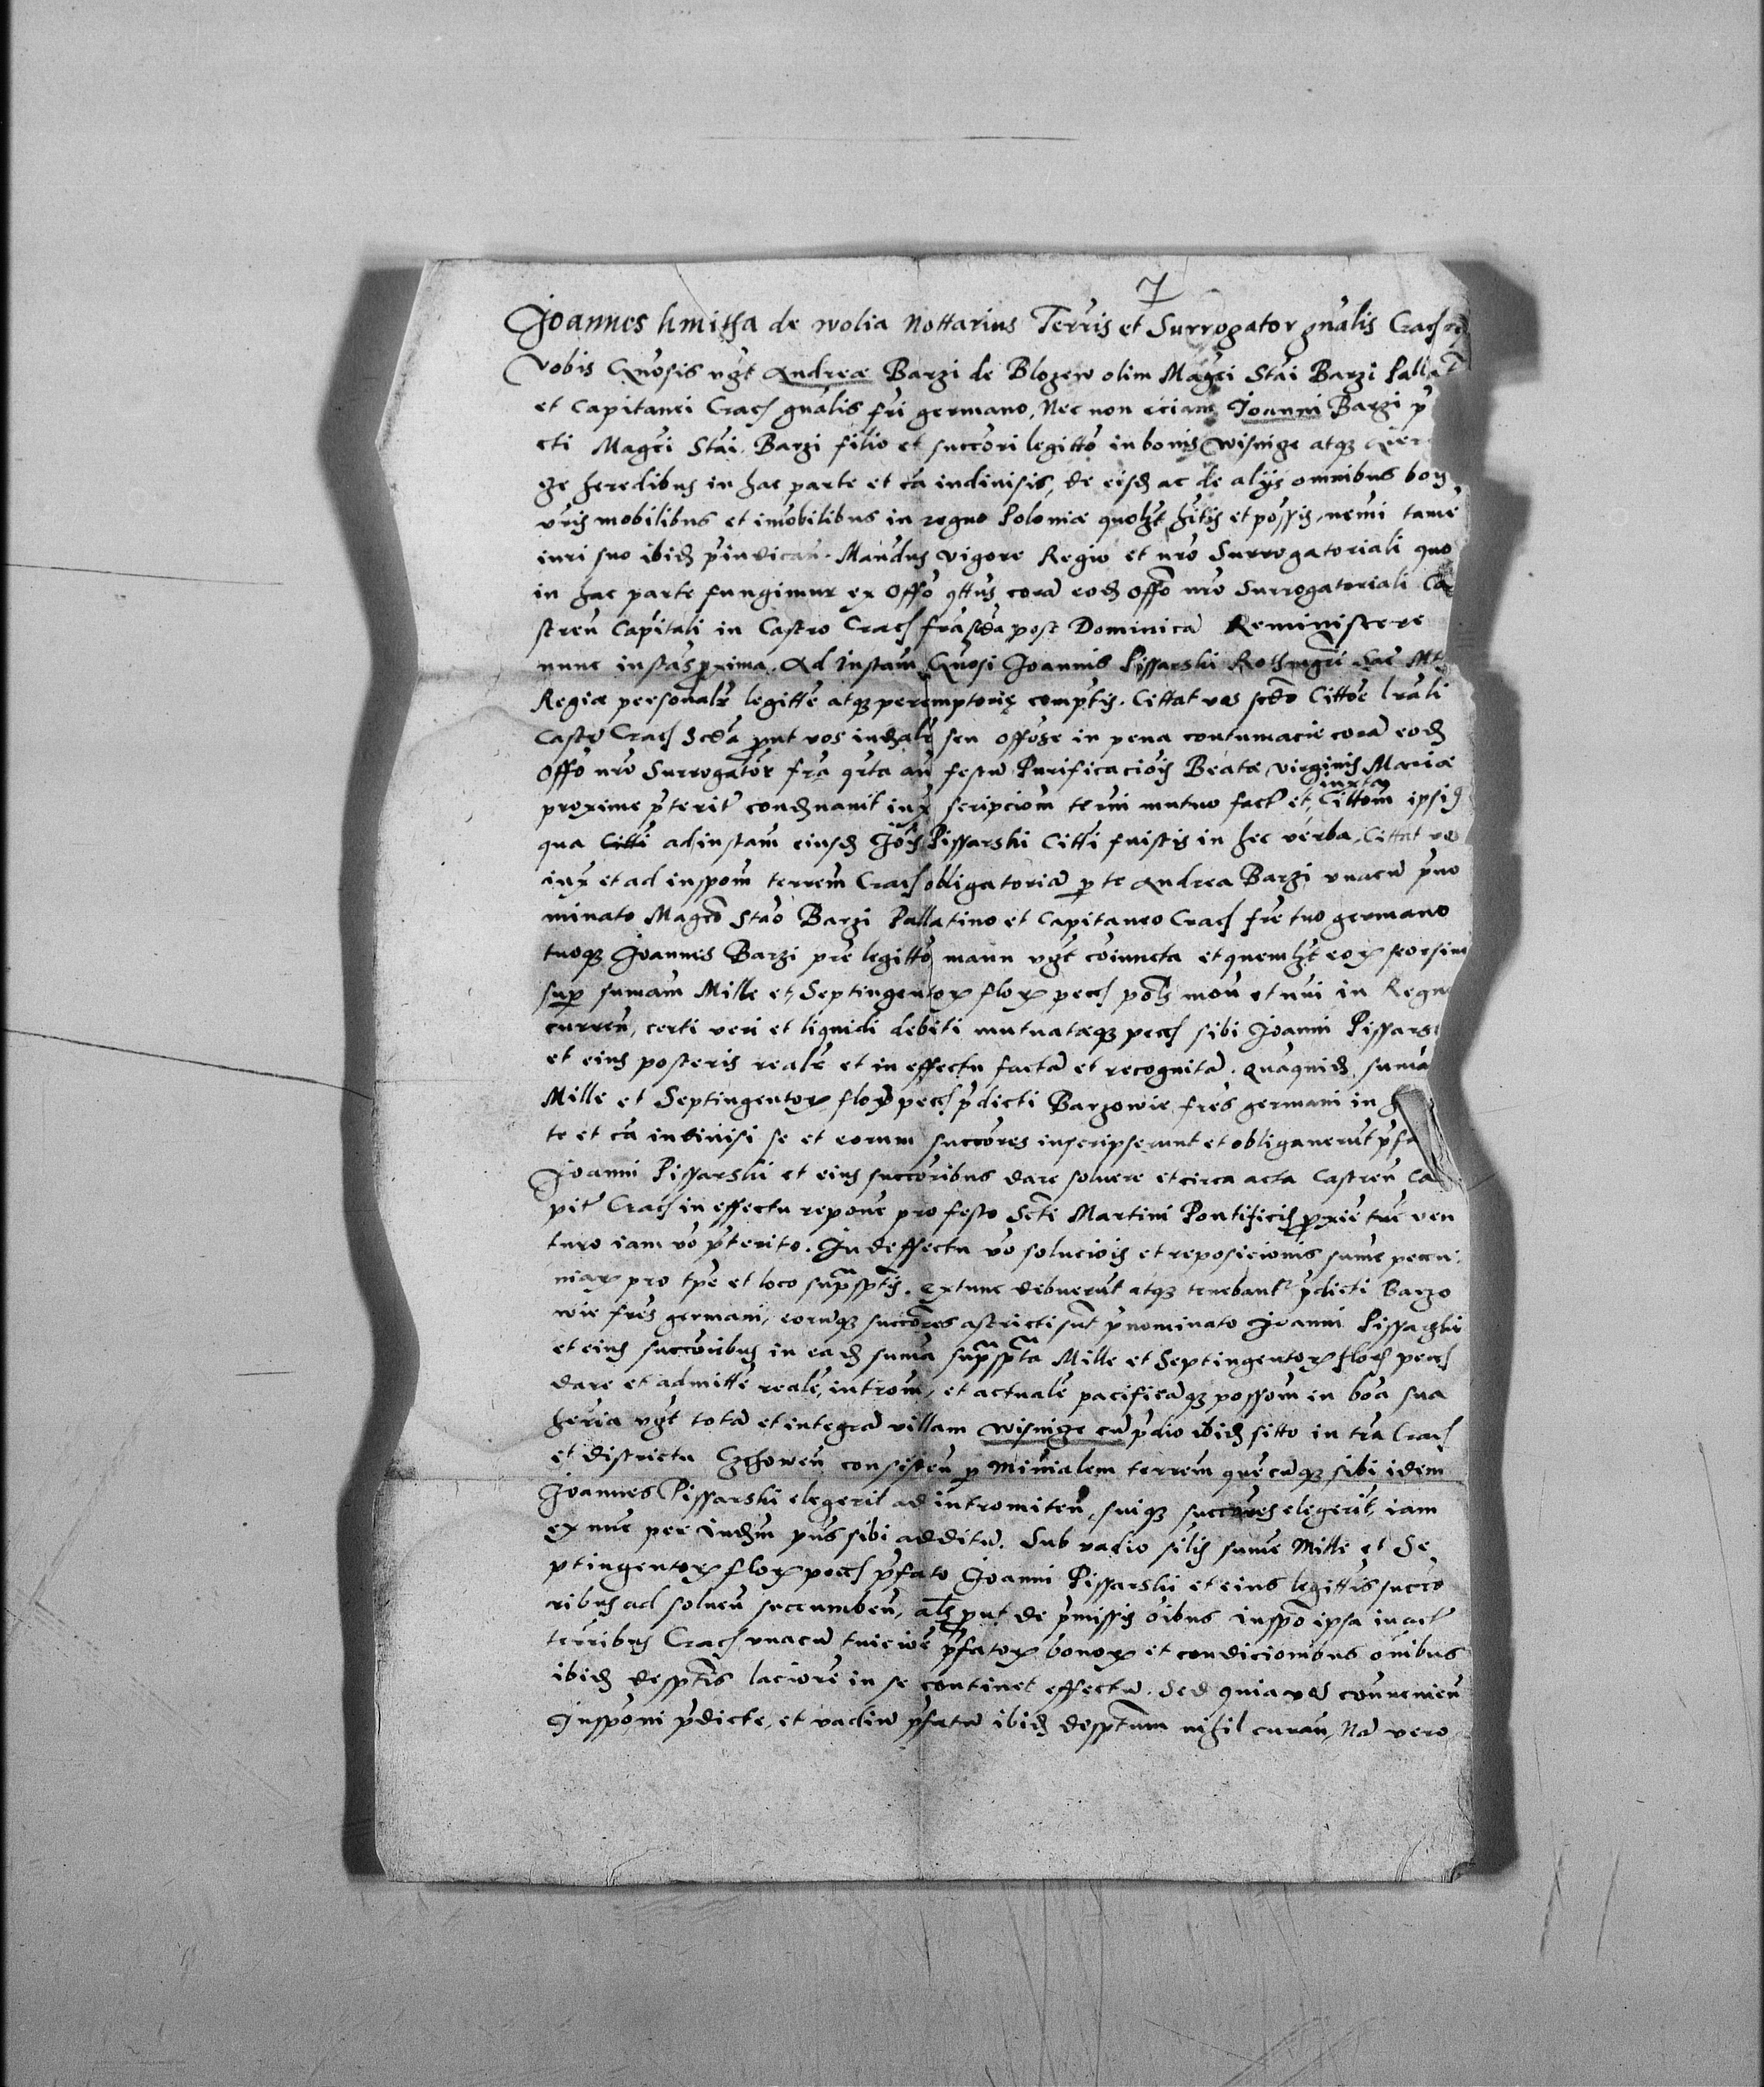 7
Joannes kmitha de wolia Nottarius Terris et Surrogator gnalis Crac
Vobis Gnosis vgt Andreæ Barzi de Blozew olim Magci Stai Barzi Pallat
et Capitanei Crac gnalis fri germano, Nec non eciam Joanni Barzi p
cti Magci Stai Barzi filio et succori legitto in bonis Wisnize atqz
ze heredibus in hac parte et ca indiuisis, de eisd ac de alijs omnibus bon
vris mobilibus et imobilibus in regno Poloniæ quolzt hitis et possis, nemi tame
iuri suo ibid p̄iudican. Mandus vigore Regio et nro Surrogatoriali quo
in hac parte fungimur ex Offo qttus cora eod Offo nro Surrogatoriali Ca
stren Capitali in Castro Crac fra scda post Dominica Reminiscere
nunc instas proxima. Ad instam Gnosi Joannis Pissarski Rothmgri Sac Mt
Regiæ personalr legitte atqz peremptorie comptis. Cittat vos scdo Cittoe lrali
Castr Crac Scda put vos iudzale seu Offose in pena contumacie cora eod
Offo nro Surrogator fra qrta an festu Purificaciois Beatæ virginis Mariæ
proxime pterit condnauit iux scripciom termi mutuo fact et iuxta Cittom ipsi
qua Citti ad instam eiusd Jois Pissarski Citti fuistis in hec verba. Cittat vos
iux et ad inspom terrem Crac obligatoria p te Andrea Barzi vnacu pno
minato Magco Stao Barzi Pallatino et Capitaneo Crac fre tuo germano
tuoqz Joannes Barzi pre legitto manu vgt coiuncta et quemlzt eox seorsim
sup sumam Mille et Septingentox flox pecc pols mon et nui in Regn
curren, certi veri et liquidi debiti mutuatæqz pecc sibi Joanni Pissars
et eius posteris realr et in effectu facta et recognita. Quaquid suma
Mille et Septingentox flox pecc pdicti Barzowie fres germani in
te et ca indiuisi se et eorum succores inscripserunt et obligauerut pfa
Joanni Pissarski et eius succoribus dare soluere et circa acta Castren Ca
pit Crac in effectu repone pro festo Scti Martini Pontificis proxie tuc ven
turo iam vo pterito. In deffectu vo soluciois et reposicionis sume pecu
niar pro tpe et loco suprasptis. extunc debuerut atqz tenebant pdicti Barzo
wie fres germani, eoruqz succores astricti sunt pnominato Joanni Pissarski
et eius succoribus in ead suma supraspta Mille et Septingentox flor pecc
dare et admitte reale, introm, et actuale pacificaqz possom in boa sua
heria vgt tota et integra villam Wisnize cu pdio ibid sitto in tra Crac
et districtu Czchowen consisten p Minialem terrem quecuqz sibi idem
Joannes Pissarski elegerit ad intromiten, suiqz succores elegerit, iam
ex nuc per iudm pus sibi additu. Sub vadio silis sume Mille et Se
ptingentox flox pecc pfato Joanni Pissarski et eius legittis succo
ribus ad soluen succumben, als put de pmissis oibus inspo ipsa in act
terribus Crac vnacu pfatox bonox et condicionibus omibus
ibid desptis laciore in se continet effectu. Sed quia vos conuenien
Insponi pdicte, et vadiu pfatu ibid desptum nihil curan, Na vero